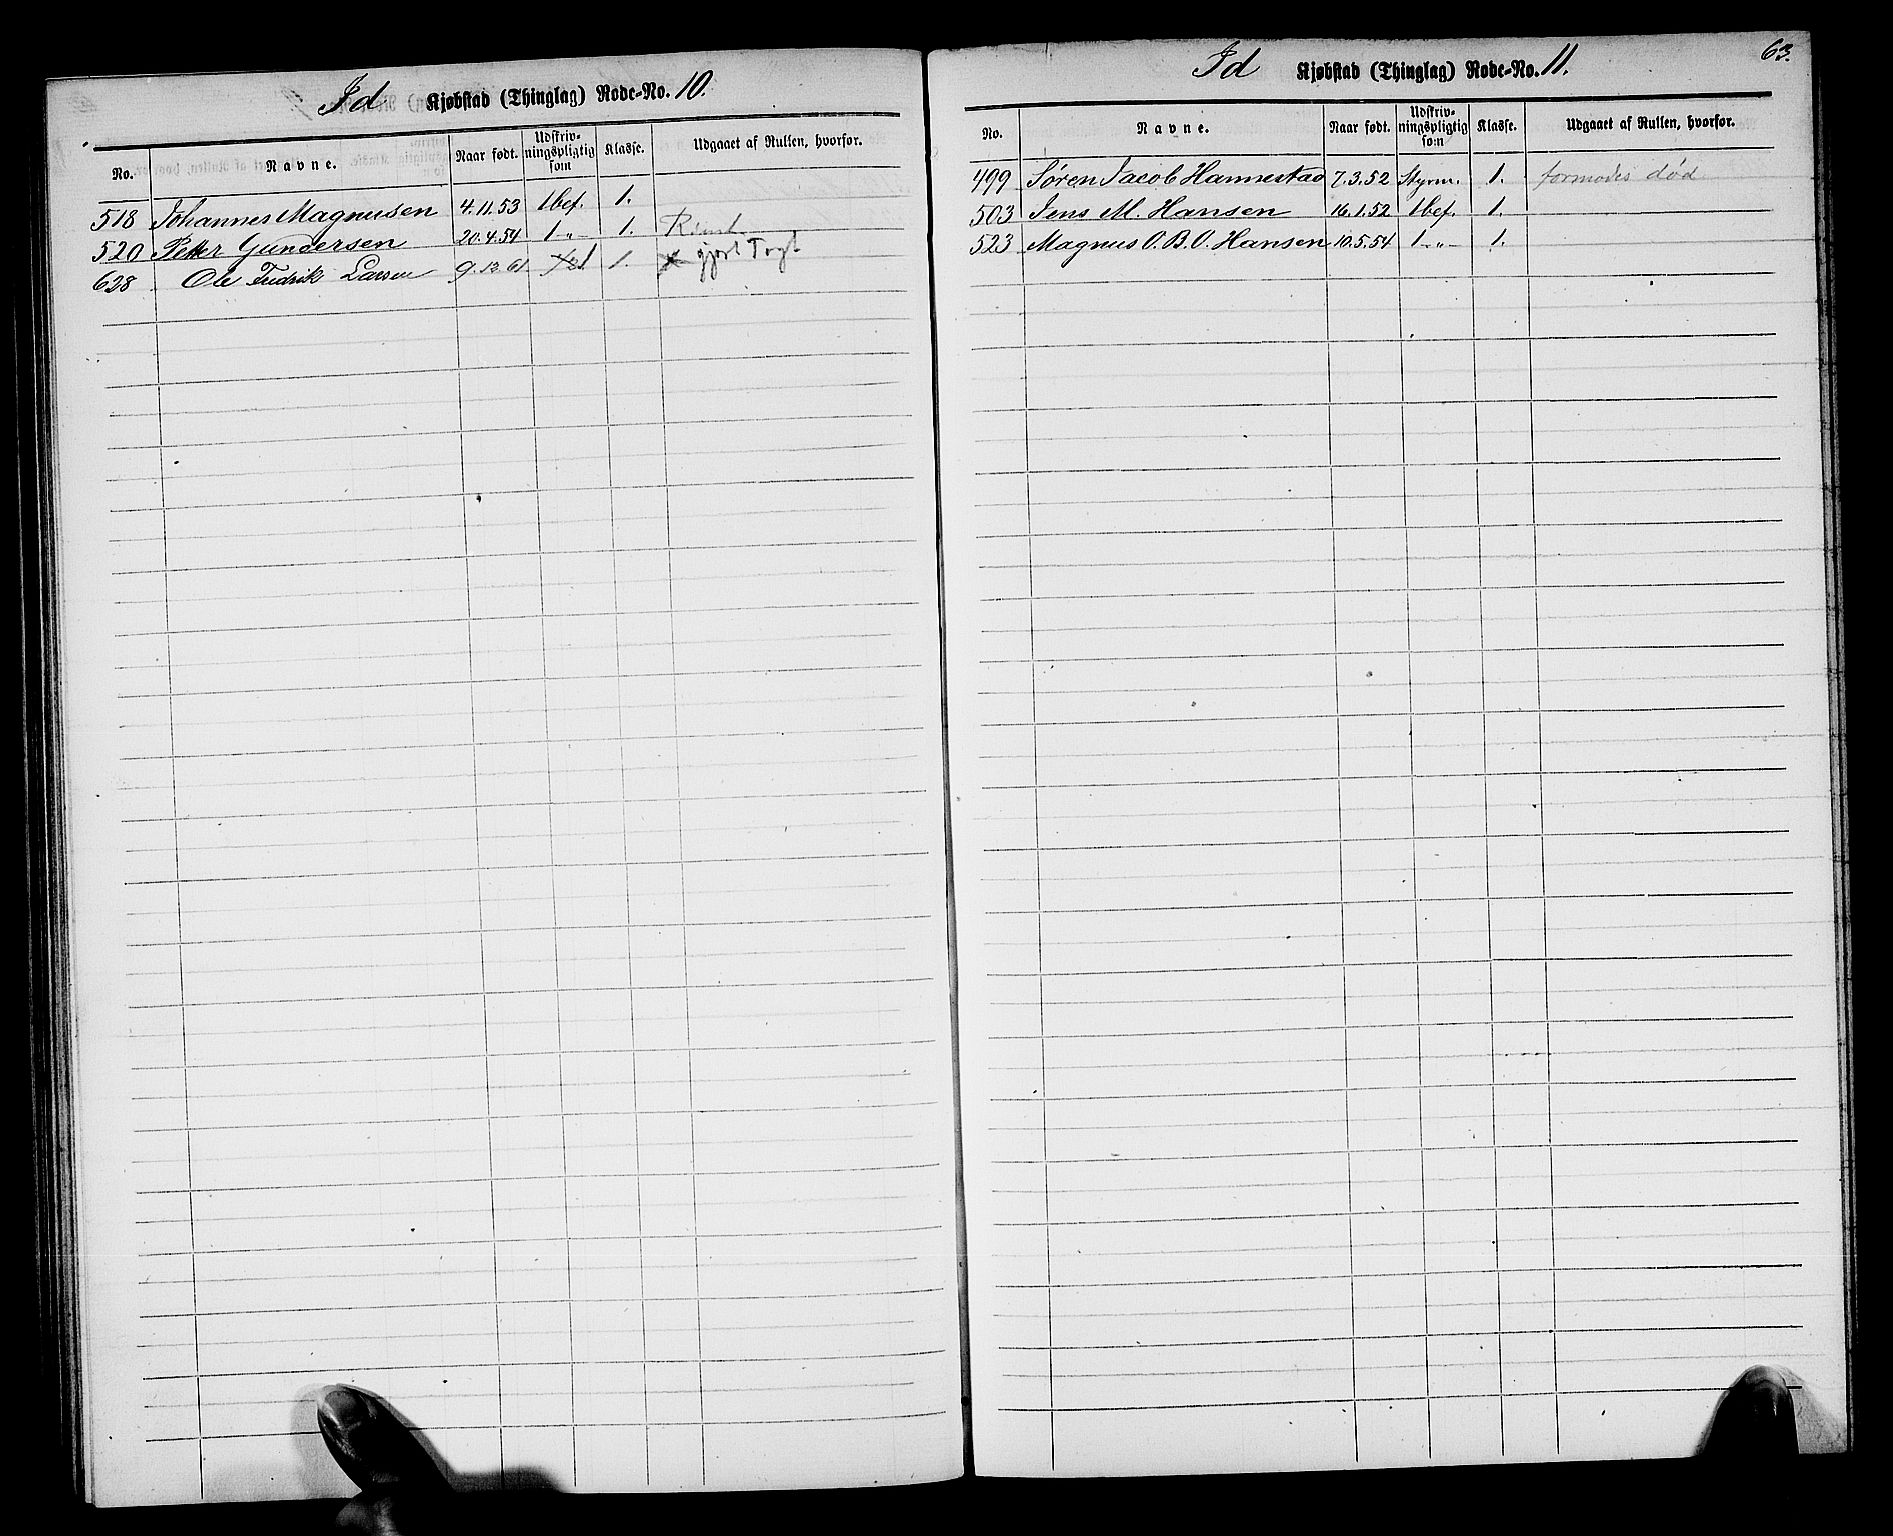 Id Kjøbstad (Thinglag) Rode-No. 10.
No. Navne. Naar født. Udskrivningspligtig som Klasse. Udgaaet af Rullen, hvorfor.
518 Johannes Magnusen 4.11.53 1bef. 1.
520 Petter Gundersen 20.4.54 1 -„- 1.
628 Ole Fredrik Larsen 9.12.61 1. gjort Togt
63.
Id Kjøbstad (Thinglag) Rode-No. 11.
No. Navne. Naar født. Udskrivningspligtig som Klasse. Udgaaet af Rullen, hvorfor.
499 Søren Jacob Hannestad 7.3.52 Styrm. 1. formodes død
503 Jens M. Hansen 16.1.52 1bef. 1.
523 Magnus O. B. O. Hansen 10.5.54 1 -„- 1.